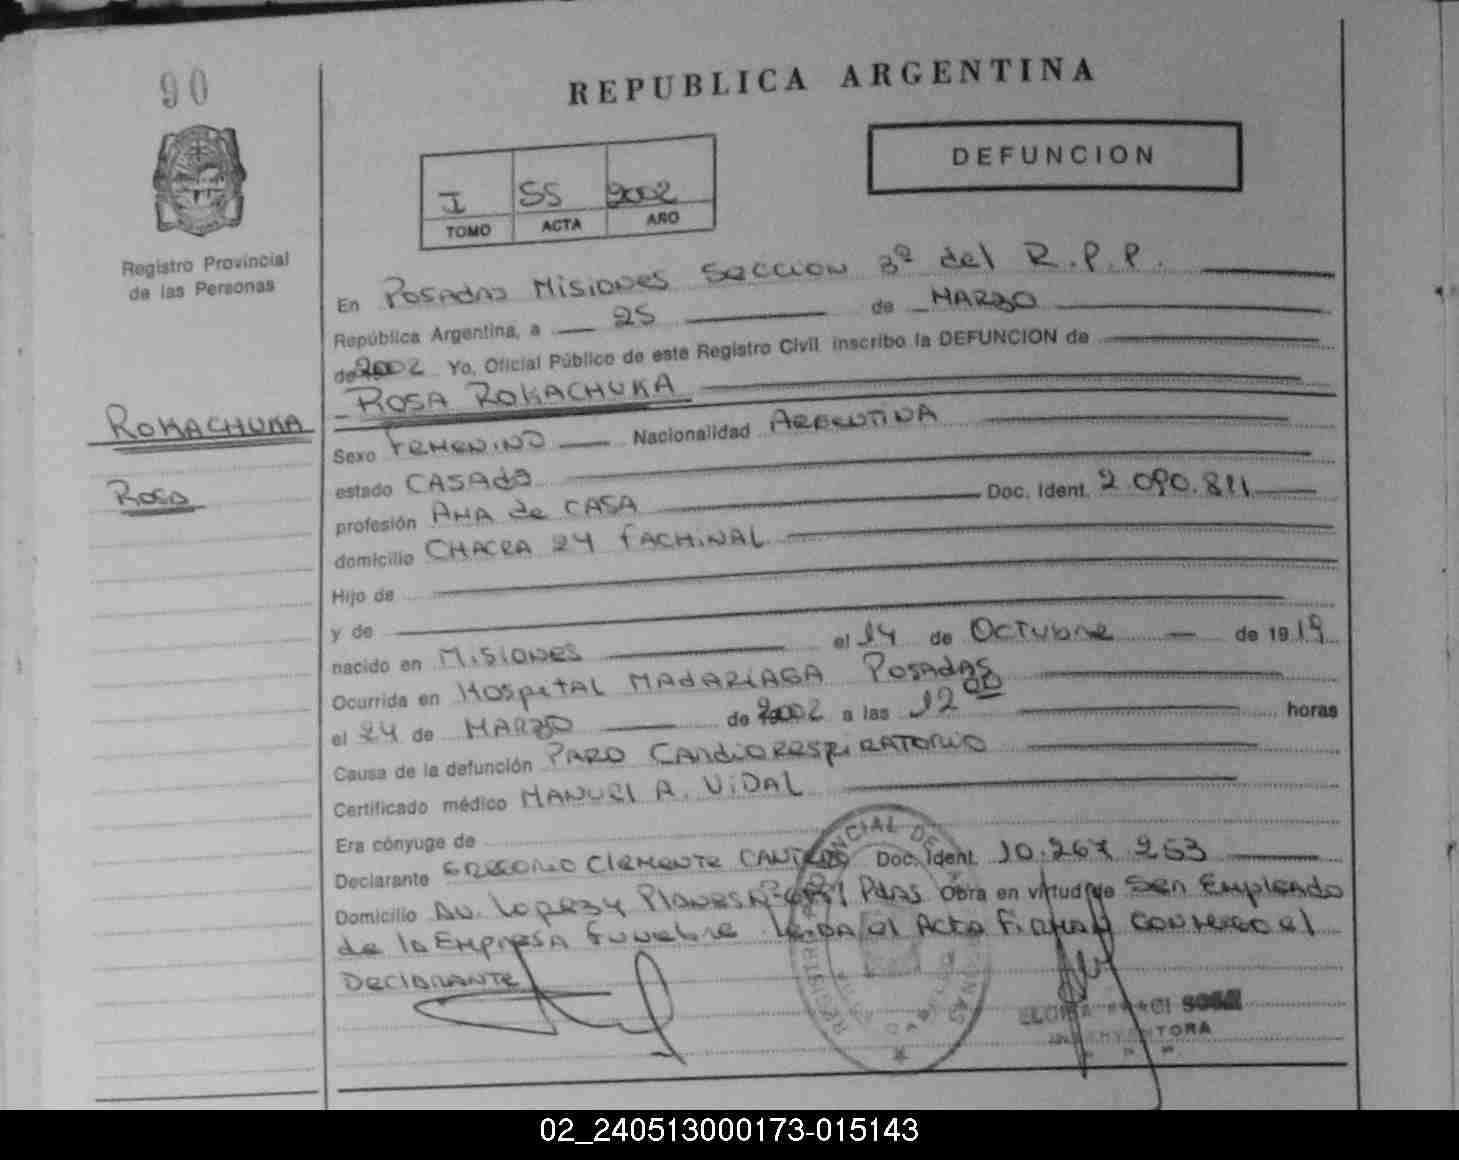 90
REPUBLICA ARGENTINA
DEFUNCION
I 55 2002
TOMO ACTA AÑO
Registro Provincial
de las Personas
En Posadas Misiones Seccion 3ª del R.P.P.
República Argentina, a 25 de MARZO
de 2002 Yo, Oficial Público de este Registro Civil inscribo la DEFUNCION de
ROSA ROKACHUKA
ROKACHUKA
Rosa
Sexo Femenino Nacionalidad ARGENTINA
estado CASADA
profesión AMA de CASA Doc. Ident. 2.090.811
domicilio CHACRA 24 FACHINAL
Hijo de
y de
nacido en Misiones el 14 de Octubre de 19 19
Ocurrida en Hospital MADARIAGA POSADAS
el 24 de MARZO de 2002 a las 12 00 horas
Causa de la defunción PARO CARDIORESPIRATORIO
Certificado médico MANUEL A. VIDAL
Era cónyuge de
Declarante GREGORIO CLEMENTE Doc. Ident. 10.267.253
Domicilio AV. LOPEZ Y PLANES Pdas Obra en virtud de Ser Empleado
de la Empresa Funebre Leida el Acta Firma Conmigo el
DECLARANTE
SOSA
INTERVENTORA
02_240513000173-015143